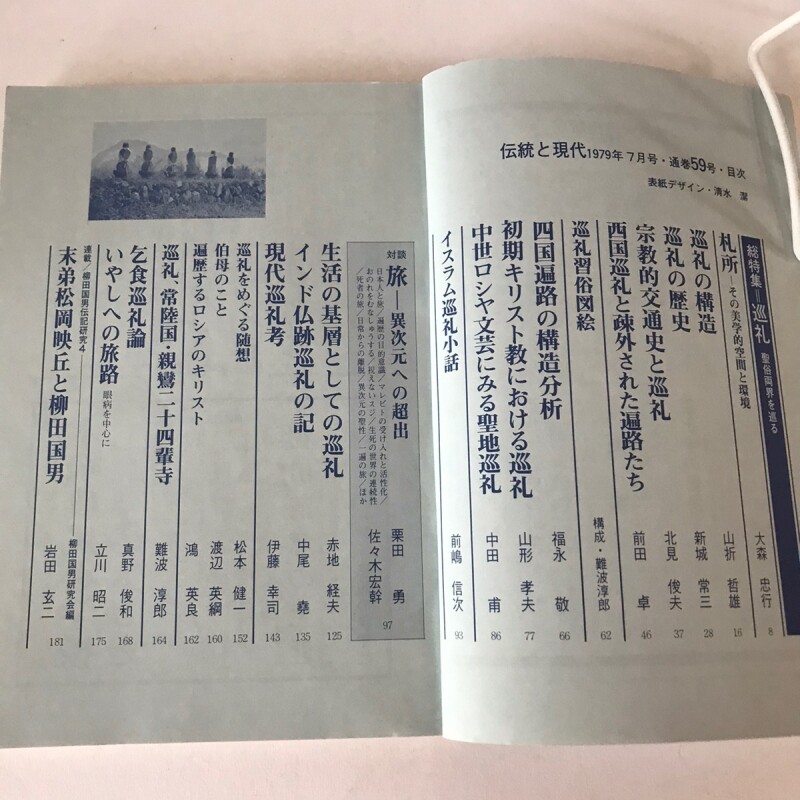 伝統と現代1979年7月号・通巻59号・目次
表紙デザイン・清水 潔
総特集=巡礼 聖俗両界を巡る
札所―その美学的空間と環境 大森 忠行 8
巡礼の構造 山折 哲雄 16
巡礼の歴史 新城 常三 28
宗教的交通史と巡礼 北見 俊夫 37
西国巡礼と疎外された遍路たち 前田 卓 46
巡礼習俗図絵 構成・難波淳郎 62
四国遍路の構造分析 福永 敬 66
初期キリスト教における巡礼 山形 孝夫 77
中世ロシヤ文芸にみる聖地巡礼 中田 甫 86
イスラム巡礼小話 前嶋 信次 93
対談 旅―異次元への超出 栗田 勇
日本人と旅／遍歴の目的意識／マレビトの受け入れと活性化／
おのれをむなしゅうする／視えないスジ／生死の世界の連続性
／死者の旅／日常からの離脱／異次元の聖性／一遍の旅／ほか
佐々木宏幹 97
生活の基層としての巡礼 赤地 経夫 125
インド仏跡巡礼の記 中尾 堯 135
現代巡礼考 伊藤 幸司 143
巡礼をめぐる随想 松本 健一 152
伯母のこと 渡辺 英綱 160
遍歴するロシアのキリスト 鴻 英良 162
巡礼、常陸国・親鸞二十四輩寺 難波 淳郎 164
乞食巡礼論 真野 俊和 168
いやしへの旅路 眼病を中心に 立川 昭二 175
連載／柳田国男伝記研究4 柳田国男研究会編
末弟松岡映丘と柳田国男 岩田 玄二 181